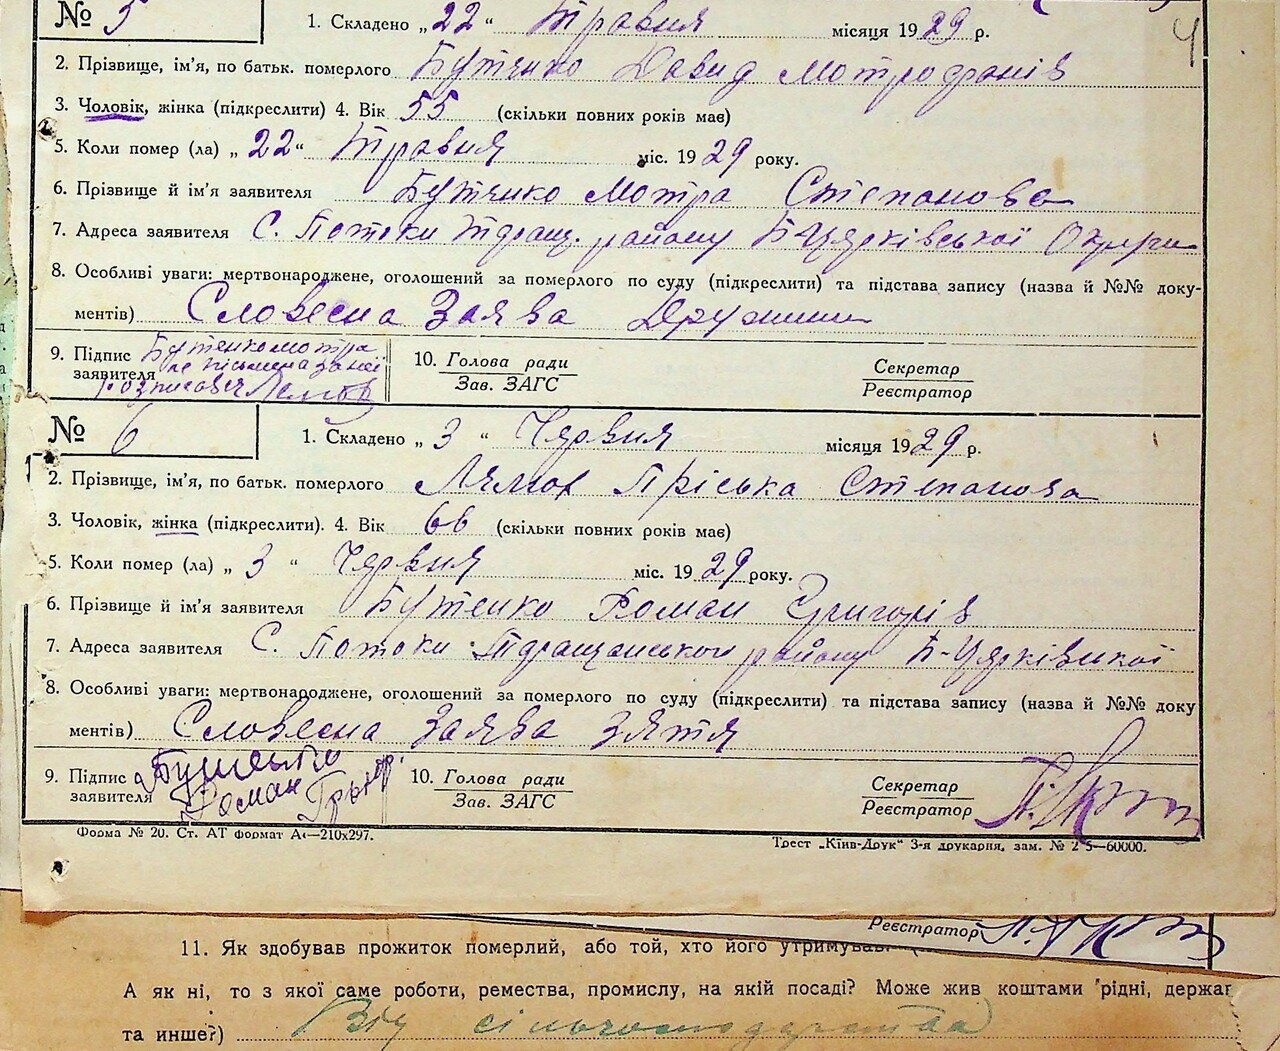 № 5 1. Складено „22“ травня місяця 1929 р. 4
2. Прізвище, ім'я, по батьк. померлого Бутенко Давид Мотрофанів
3. Чоловік, жінка (підкреслити) 4. Вік 55 (скільки повних років має)
5. Коли помер (ла) „22“ травня міс. 1929 року.
6. Прізвище й ім'я заявителя Бутенко Мотра Степанова
7. Адреса заявителя С. Потоки району Б Церківської Округи
8. Особливі уваги: мертвонароджене, оголошений за померлого по суду (підкреслити) та підстава запису (назва й №№ доку-
ментів) Словесна Заява Дружини
9. Підпис Бутенко Мотра 10. Голова ради Секретар
заявителя Зав. ЗАГС Реєстратор
№ 6 1. Складено „3“ Червня місяця 1929 р.
2. Прізвище, ім'я, по батьк. померлого Пріська Степанова
3. Чоловік, жінка (підкреслити). 4. Вік 66 (скільки повних років має)
5. Коли помер (ла) „3“ Червня міс. 1929 року.
6. Прізвище й ім'я заявителя Бутенко Роман Григорів
7. Адреса заявителя С. Потоки району Б-Церківської
8. Особливі уваги: мертвонароджене, оголошений за померлого по суду (підкреслити) та підстава запису (назва й №№ доку
ментів) Словесна Заява Зятя
9. Підпис Бутенко 10. Голова ради Секретар
заявителя Роман Григор. Зав. ЗАГС Реєстратор
Форма № 20. Ст. АТ формат А4—210х297.
Трест „Київ-Друк“ 3-я друкарня, зам. № 2 5—60000.
Реєстратор
11. Як здобував прожиток померлий, або той, хто його утримував?
А як ні, то з якої саме роботи, ремества, промислу, на якій посаді? Може жив коштами рідні, держав
та инше?) Від сільгосподарства